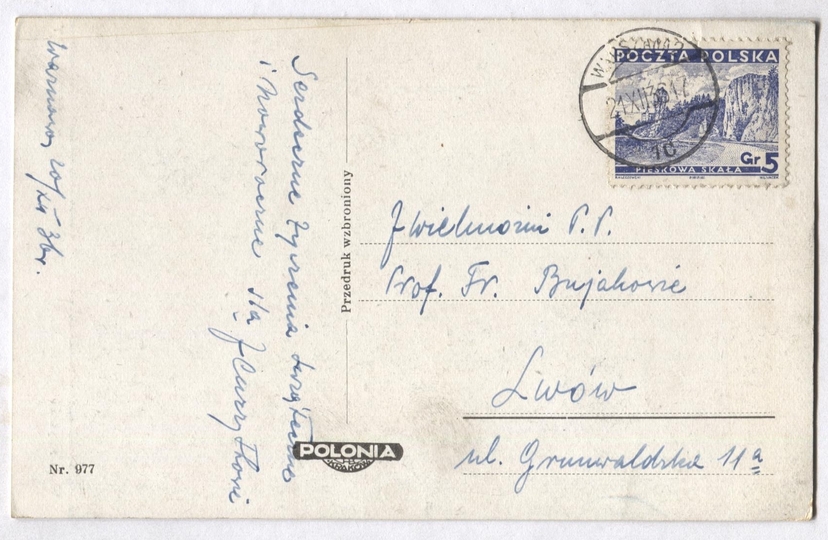 Warszawa, 20/XII 36r.
Serdeczne życzenia świąteczne
i noworoczne śla
Przedruk wzbroniony
Nr. 977
POLONIA
KRAKÓW
WARSZAWA 2
21.XII.36.17
1C
POCZTA POLSKA
Gr 5
PIESKOWA SKAŁA
JWielmożni P.P.
Prof. Fr. Bujakowie
Lwów
ul. Grunwaldzka 11a